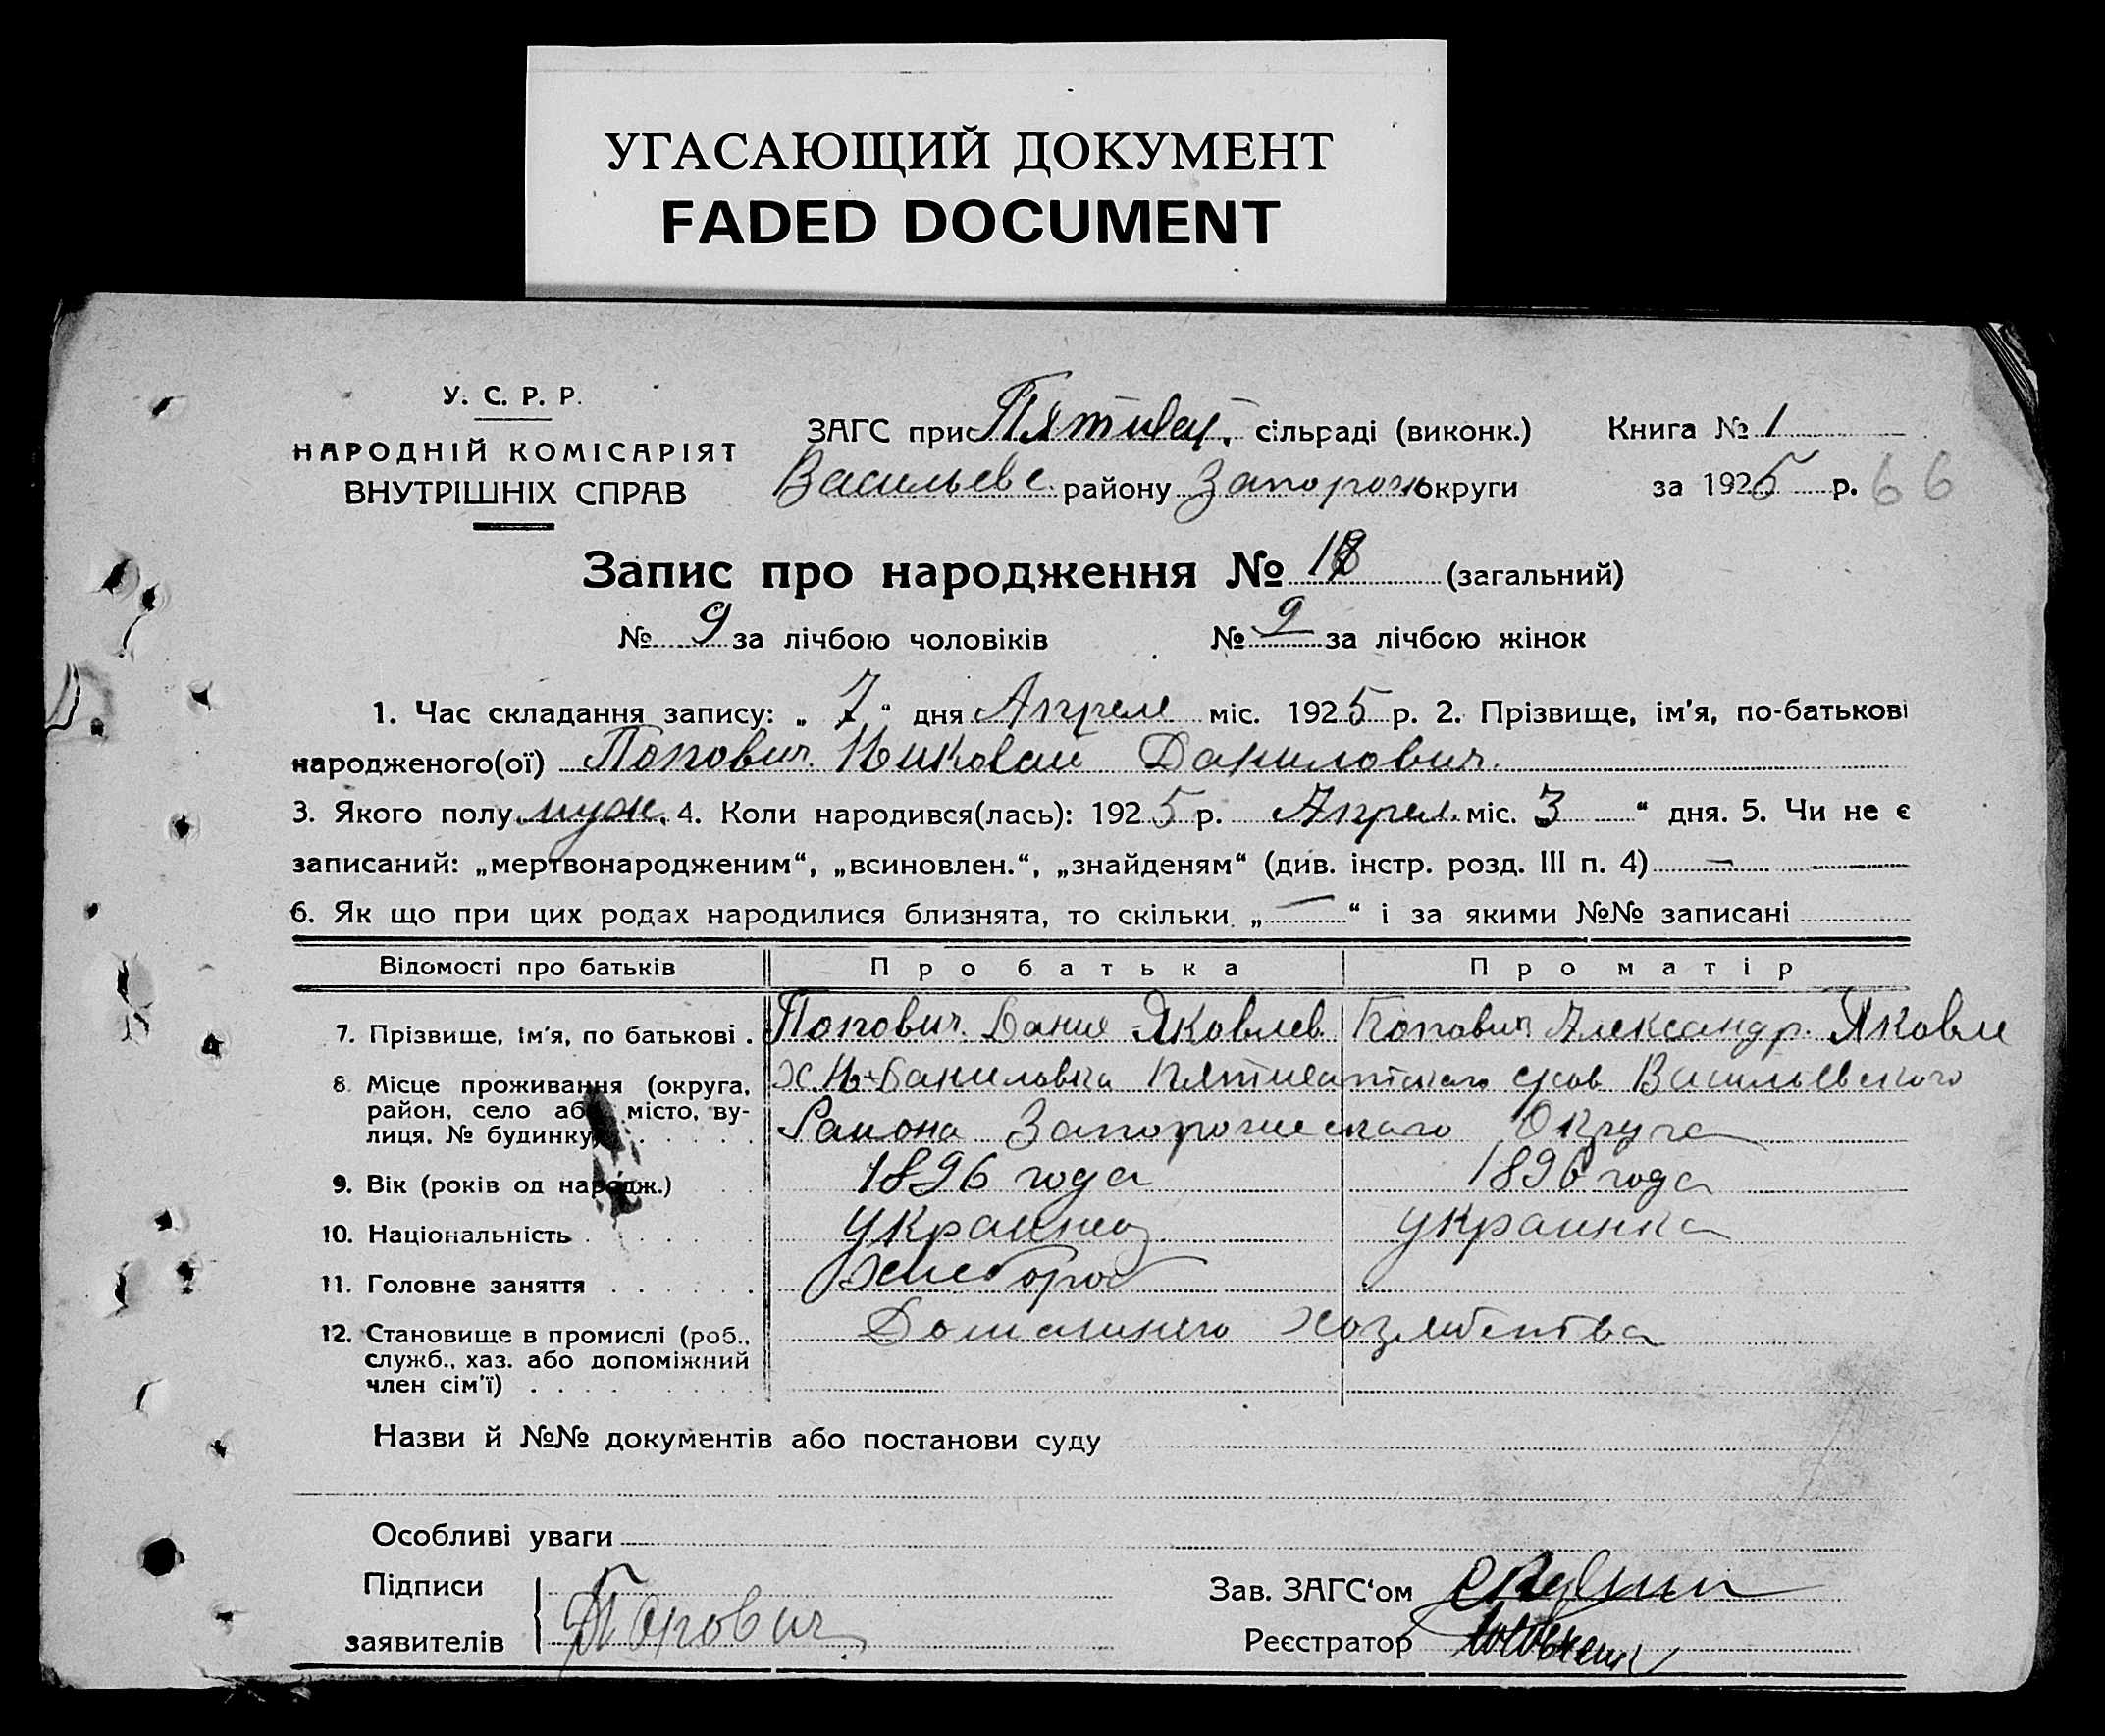 УГАСАЮЩИЙ ДОКУМЕНТ
FADED DOCUMENT
У. С. Р. Р.
НАРОДНІЙ КОМІСАРІЯТ
ВНУТРІШНІХ СПРАВ
ЗАГС при Пятихат. сільраді (виконк.) Книга № 1
Васильевс. району Запорож округи за 1925 р. 66
Запис про народження № 18 (загальний)
№ 9 за лічбою чоловіків № 9 за лічбою жінок
1. Час складання запису: „ 7 “ дня Апреля міс. 1925 р. 2. Прізвище, ім'я, по-батькові
народженого(ої) Попович Николай Данилович.
3. Якого полу муж. 4. Коли народився(лась): 1925 р. Апрел. міс. 3 “ дня. 5. Чи не є
записаний: „мертвонародженим“, „всиновлен.“, „знайденям“ (див. інстр. розд. III п. 4) —
6. Як що при цих родах народилися близнята, то скільки „ — “ і за якими №№ записані
Відомості про батьків Про батька Про матір
7. Прізвище, ім'я, по батькові . Попович Данил Яковлев Попович Александр. Яковл
8. Місце проживання (округа, Х. Н-Даниловка Пятихатского сусов Васильевского
район, село або місто, ву-
лиця, № будинку) Района Запорожского Округа
9. Вік (років од народж.) 1896 года 1896 года
10. Національність . украинец украинка
11. Головне заняття . Хлебороб
12. Становище в промислі (роб., Домашнего хозяйства
служб., хаз. або допоміжний
член сім'ї) .
Назви й №№ документів або постанови суду
Особливі уваги
Підписи Зав. ЗАГС‘ом
заявителів Попович Реєстратор